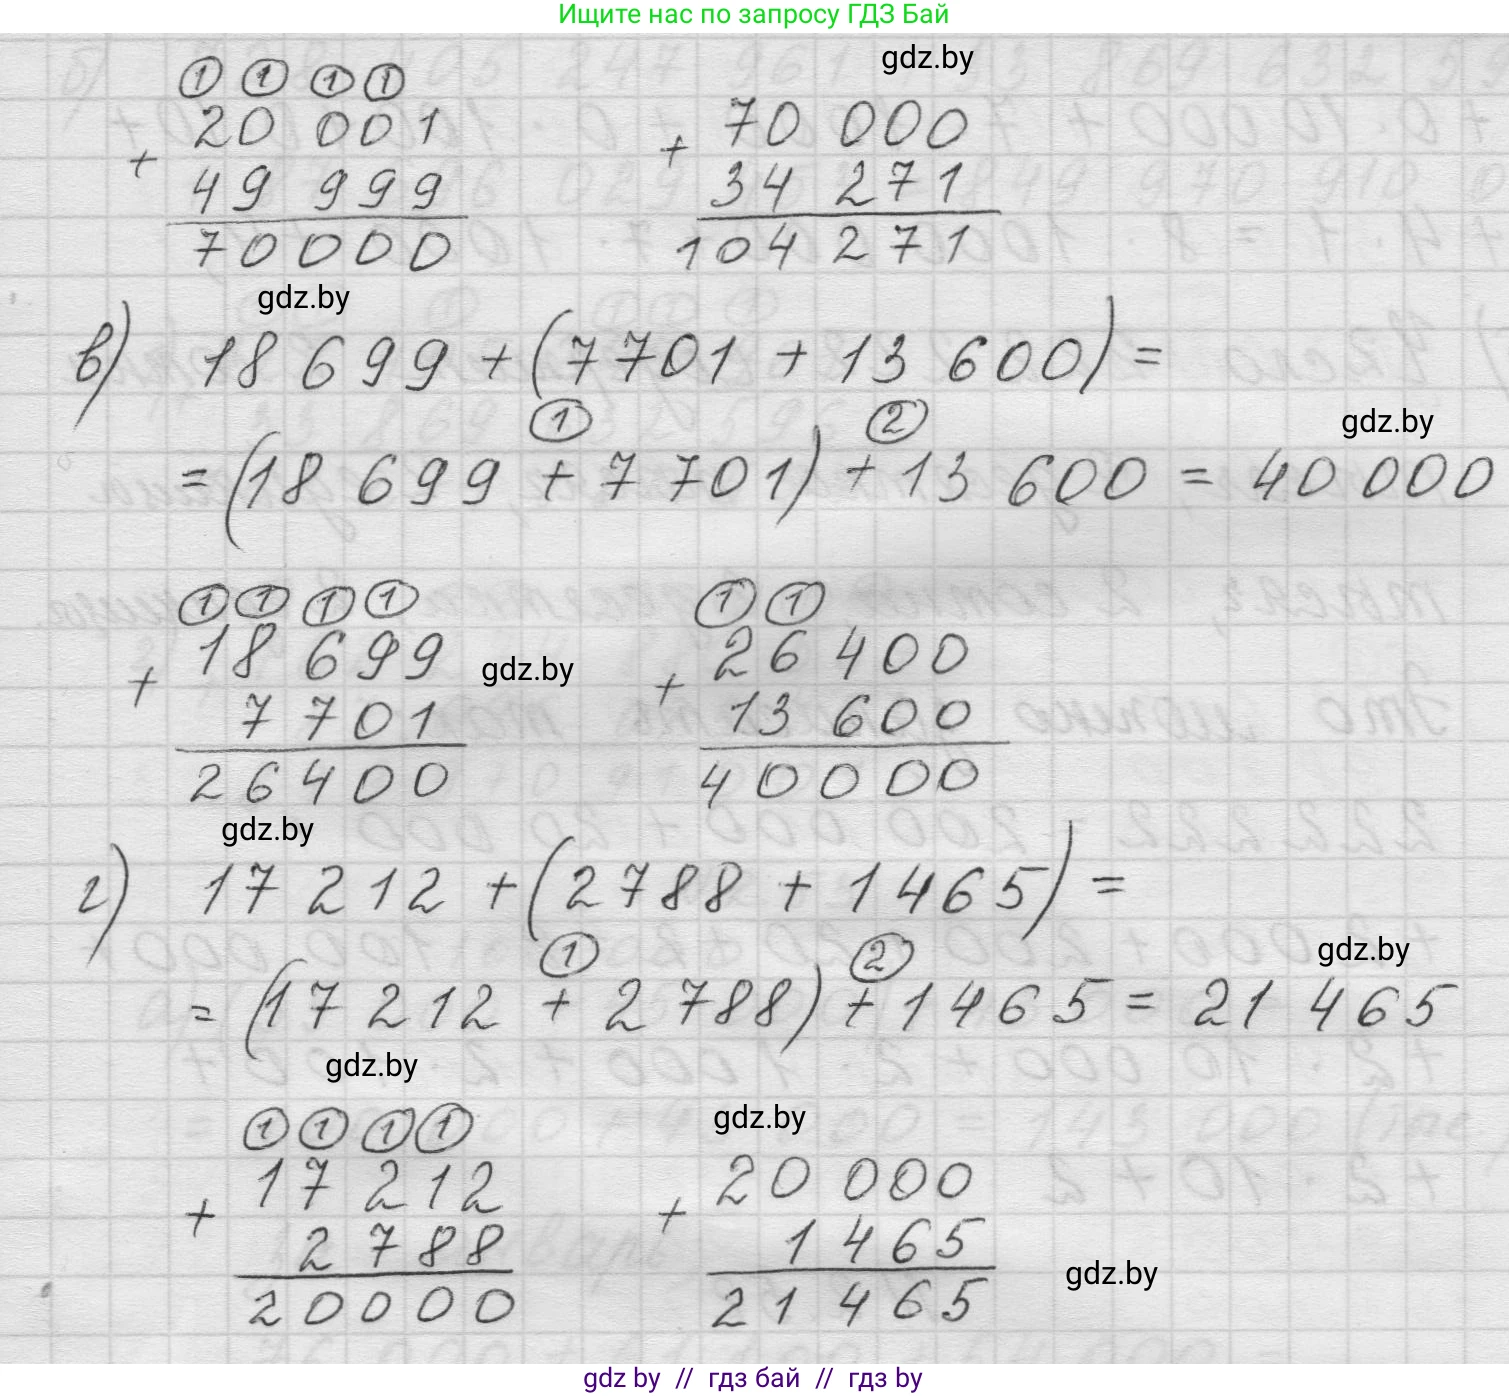 Ищите нас по запросу ГДЗ Бай
gdz.by
① ① ① ①
20 001
+
49 999
70000
70 000
+
34 271
104 271
gdz.by
в) 18 699 + (7701 + 13 600) =
① ②
gdz.by
= (18 699 + 7 701) + 13 600 = 40 000
① ① ① ①
18 699
+
7 701
26400
gdz.by
① ①
26 400
+
13 600
40000
gdz.by
г) 17 212 + (2788 + 1465) =
① ②
gdz.by
= (17 212 + 2 788) + 1465 = 21 465
gdz.by
① ① ① ①
17 212
+
2 788
20000
gdz.by
20 000
+
1 465
21 465
gdz.by
gdz by // гдз бай // гдз by